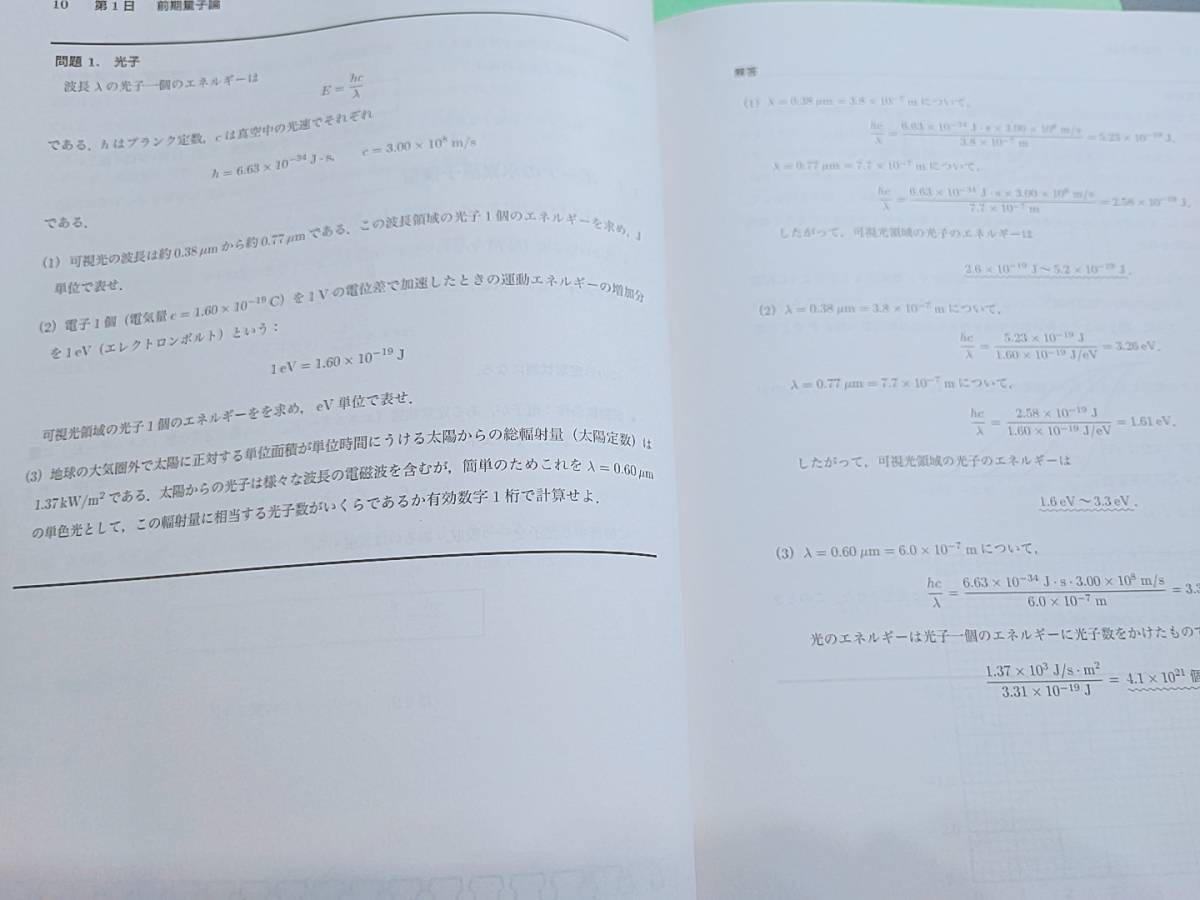 10 第1日 前期量子論
問題 1. 光子
波長 λ の光子一個のエネルギーは
E = hc/λ
である．h はプランク定数，c は真空中の光速でそれぞれ
h = 6.63 × 10⁻³⁴ J·s, c = 3.00 × 10⁸ m/s
である．
(1) 可視光の波長は約 0.38 μm から約 0.77 μm である．この波長領域の光子 1 個のエネルギーを求め，J
単位で表せ．
(2) 電子 1 個（電気量 e = 1.60 × 10⁻¹⁹ C）を 1 V の電位差で加速したときの運動エネルギーの増加分
を 1 eV（エレクトロンボルト）という：
1 eV = 1.60 × 10⁻¹⁹ J
可視光領域の光子 1 個のエネルギーをを求め，eV 単位で表せ．
(3) 地球の大気圏外で太陽に正対する単位面積が単位時間にうける太陽からの総輻射量（太陽定数）は
1.37 kW/m² である．太陽からの光子は様々な波長の電磁波を含むが，簡単のためこれを λ = 0.60 μm
の単色光として，この輻射量に相当する光子数がいくらであるか有効数字 1 桁で計算せよ．
解答
(1) λ = 0.38 μm = 3.8 × 10⁻⁷ m について，
hc/λ = 6.63 × 10⁻³⁴ J·s × 3.00 × 10⁸ m/s / 3.8 × 10⁻⁷ m = 5.23 × 10⁻¹⁹ J.
λ = 0.77 μm = 7.7 × 10⁻⁷ m について，
hc/λ = 6.63 × 10⁻³⁴ J·s × 3.00 × 10⁸ m/s / 7.7 × 10⁻⁷ m = 2.58 × 10⁻¹⁹ J.
したがって，可視光領域の光子のエネルギーは
2.6 × 10⁻¹⁹ J ～ 5.2 × 10⁻¹⁹ J.
(2) λ = 0.38 μm = 3.8 × 10⁻⁷ m について，
hc/λ = 5.23 × 10⁻¹⁹ J / 1.60 × 10⁻¹⁹ J/eV = 3.26 eV.
λ = 0.77 μm = 7.7 × 10⁻⁷ m について，
hc/λ = 2.58 × 10⁻¹⁹ J / 1.60 × 10⁻¹⁹ J/eV = 1.61 eV.
したがって，可視光領域の光子のエネルギーは
1.6 eV ～ 3.3 eV.
(3) λ = 0.60 μm = 6.0 × 10⁻⁷ m について，
hc/λ = 6.63 × 10⁻³⁴ J·s · 3.00 × 10⁸ m/s / 6.0 × 10⁻⁷ m = 3.3
光のエネルギーは光子一個のエネルギーに光子数をかけたもので
1.37 × 10³ J/s·m² / 3.31 × 10⁻¹⁹ J = 4.1 × 10²¹ 個